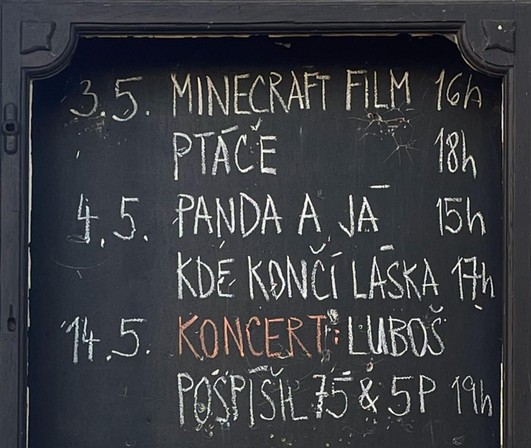 3.5. MINECRAFT FILM 16h
PTÁČE 18h
4.5. PANDA A JÁ 15h
KDE KONČÍ LÁSKA 17h
14.5. KONCERT: LUBOŠ
POSPÍŠIL 75 & 5P 19h